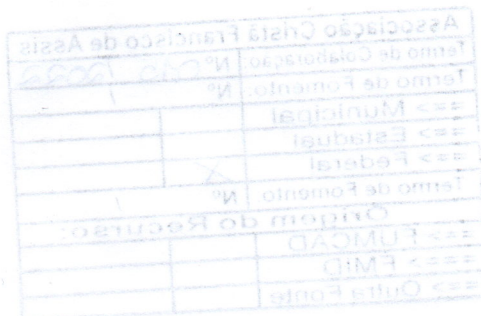 Associação Cristã Francisco de Assis
Termo de Colaboração: Nº /
Termo de Fomento: Nº /
==> Municipal
==> Estadual
==> Federal
Termo de Fomento Nº /
Origem do Recurso:
==> FUMCAD
==> FMID
==> Outra Fonte